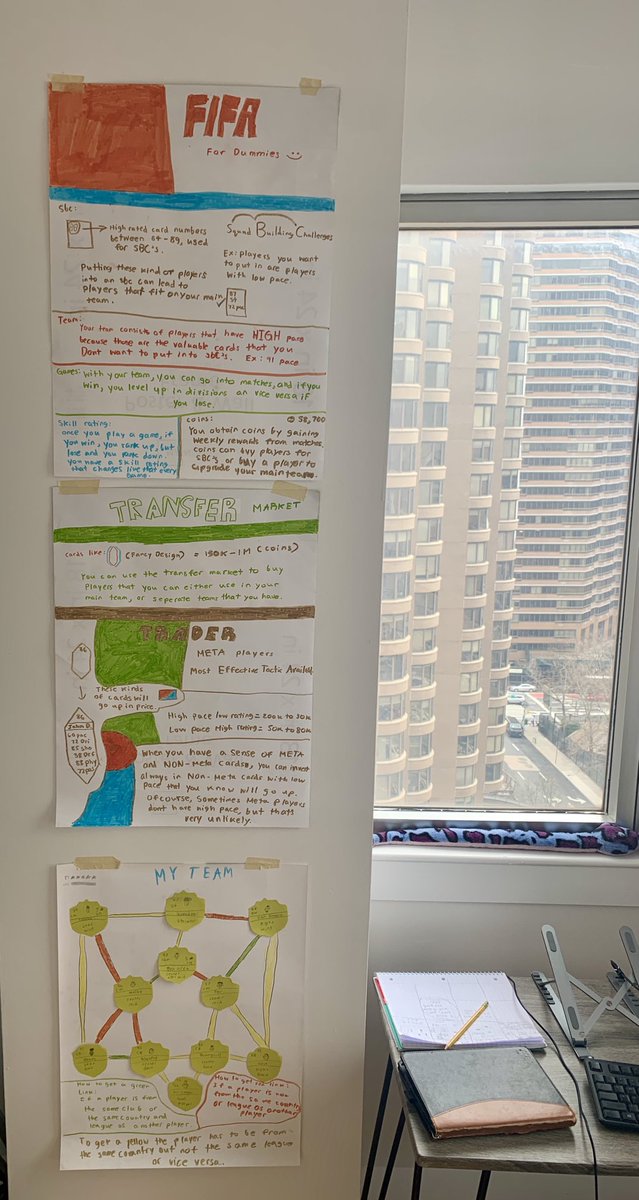 FIFA
For Dummies
Sbc:
89
High rated card numbers
between 64-89, used
for SBC's.
Putting these kind of players
into an sbc can lead to
players that fit on your main
team.
Squad Building Challenges
Ex: players you want
to put in are players
with low pace.
87
ST
72 pac
Team:
Your team consists of players that have HIGH pace
because those are the valuable cards that you
Dont want to put into SBC's. Ex: 91 pace
Games: With your team, you can go into matches, and if you
win, you level up in divisions an vice versa if
you lose.
Skill rating:
once you play a game, if
you win, you rank up, but
lose and you rank down.
you have a skill rating
that changes live that every
game.
coins: 58,700
You obtain coins by gaining
weekly rewards from matches.
coins can buy players for
SBC's or buy a player to
upgrade your main team.
TRANSFER MARKET
cards like: (Fancy Design) = 150K-1M (coins)
You can use the transfer market to buy
Players that you can either use in your
main team, or seperate teams that you have.
TRADER
META players
Most Effective Tactic Available
86
These kinds
of cards will
go up in price.
86
John D.
69 pac
72 Dri
85 sho
38 Def
88 phy
72 pas
High pace low rating = 200k to 30k
Low pace High rating = 50k to 80k
When you have a sense of META
and NON-Meta cards, you can invest
always in NON-Meta cards with low
pace that you know will go up.
Ofcourse, sometimes Meta players
dont have high pace, but thats
very unlikely.
MY TEAM
How to get a green
link:
If a player is from
the same club or
the same country and
league as another player.
How to get red link:
If a player is not
from the same country
or league as another
player
To get a yellow the player has to be from
the same country but not the same league
or vice versa.